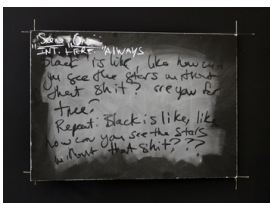 "ALWAYS
INT. HERE.
Black is like, like how can
you see the stars without
that shit? are you for
true?
Repeat: Black is like, like
how can you see the stars
without that shit???